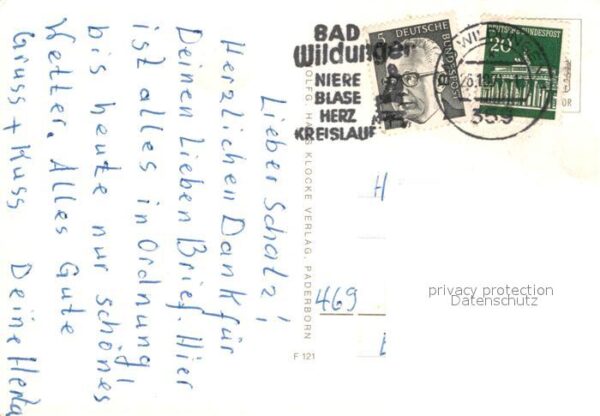 Lieber Schatz!
Herzlichen Dank für
Deinen Lieben Brief. Hier
ist alles in Ordnung,
bis heute nur schönes
Wetter. Alles Gute
Gruss + Kuss Deine Herta
BAD
Wildungen
NIERE
BLASE
HERZ
KREISLAUF
5
DEUTSCHE BUNDESPOST
20
DEUTSCHE BUNDESPOST
359
HANS KLOCKE VERLAG, PADERBORN
F 121
H
469
privacy protection
Datenschutz